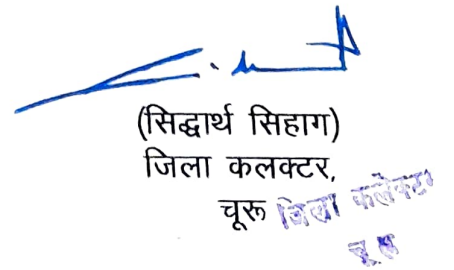 (सिद्धार्थ सिहाग)
जिला कलक्टर,
चूरू
जिला कलेक्टर
चूरू